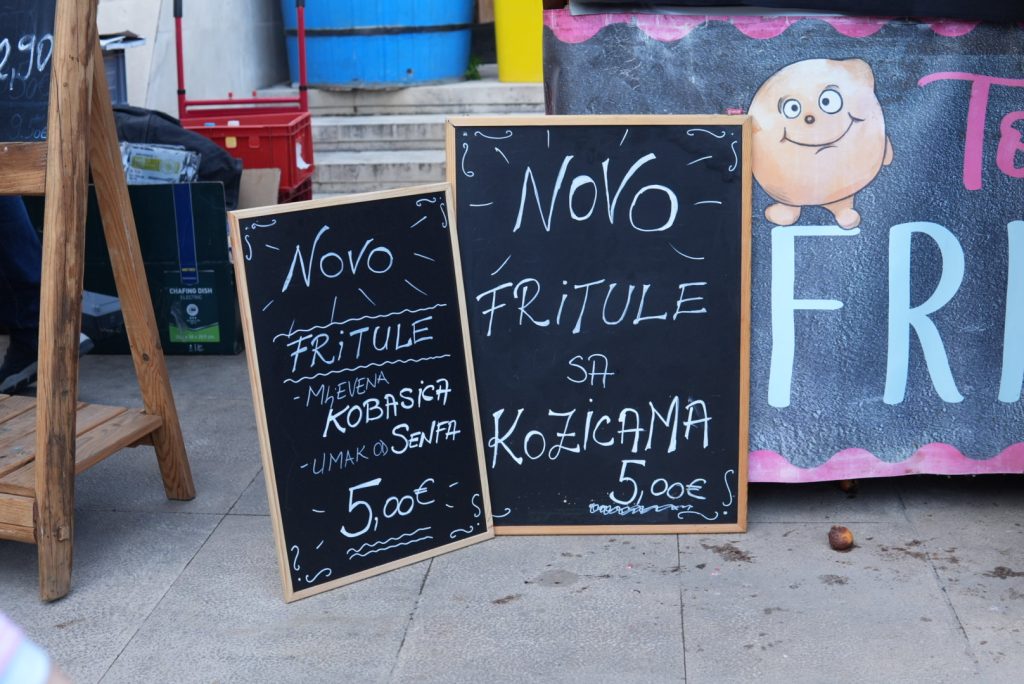 2,90
NOVO
FRITULE
- MLJEVENA
KOBASICA
- UMAK OD SENFA
5,00€
NOVO
FRITULE
SA
KOZICAMA
5,00€
FRI
CHAFING DISH
ELECTRIC